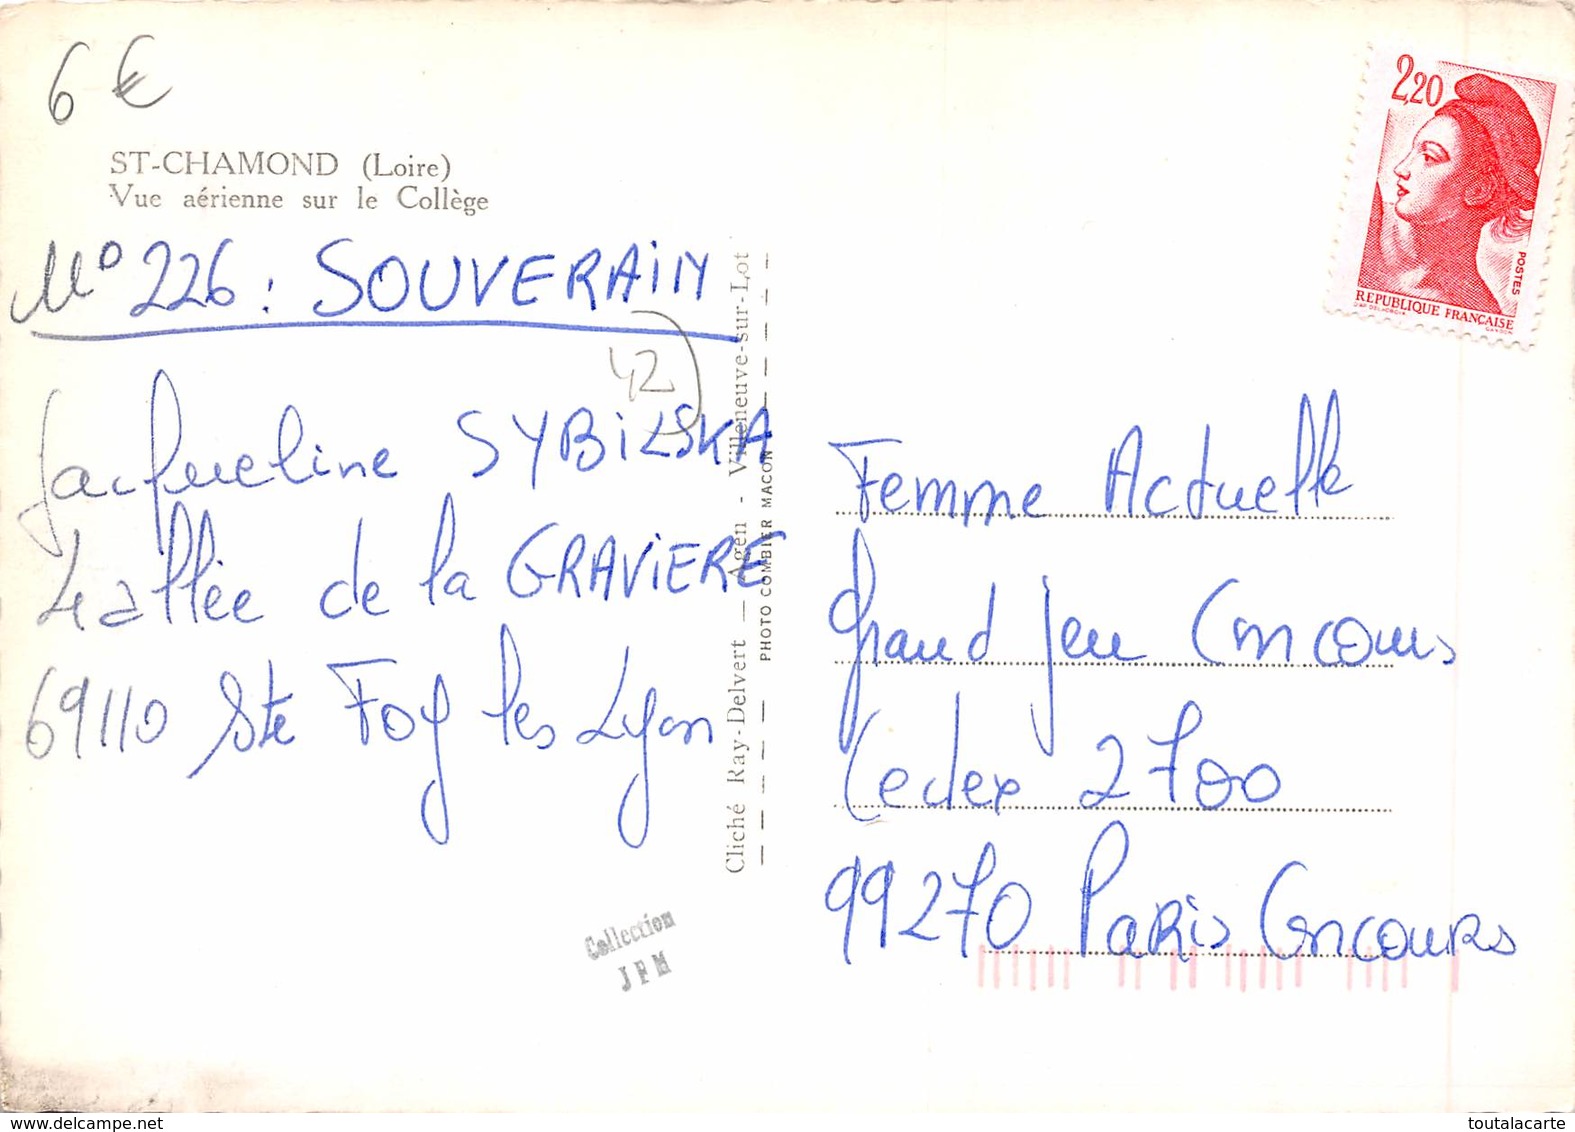 6 €
ST-CHAMOND (Loire)
Vue aérienne sur le Collège
N° 226 : SOUVERAIN
42
Jacqueline SYBILSKA
4 allée de la GRAVIERE
69110 Ste Foy les Lyon
Cliché Ray-Delvert — Agen - Villeneuve-sur-Lot
PHOTO COMBIER MACON
Collection
JPM
2,20
POSTES
REPUBLIQUE FRANÇAISE
D'AP. DELACROIX
GANDON
Femme Actuelle
Grand jeu Concours
Cedex 2700
99270 Paris Concours
www.delcampe.net
toutalacarte